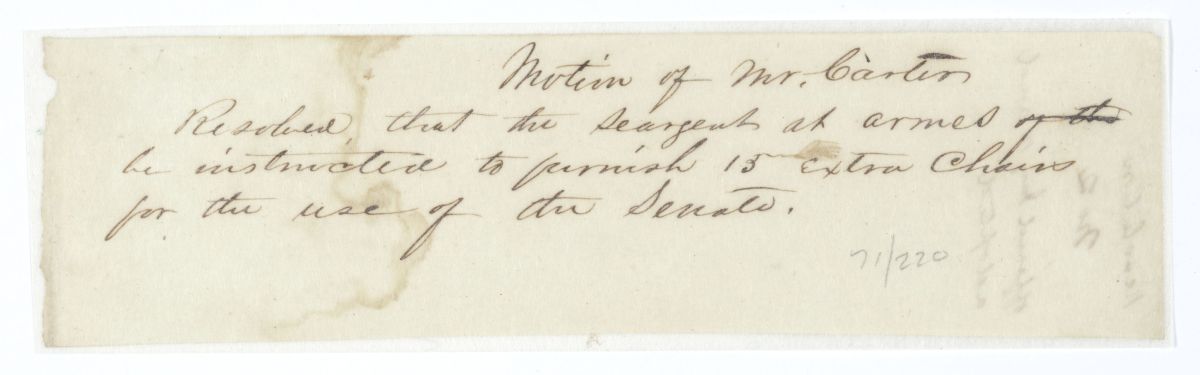 Motion of Mr. Carter
Resolved that the seargent at armes of the
be instructed to furnish 15 extra Chairs
for the use of the Senate.
71/220